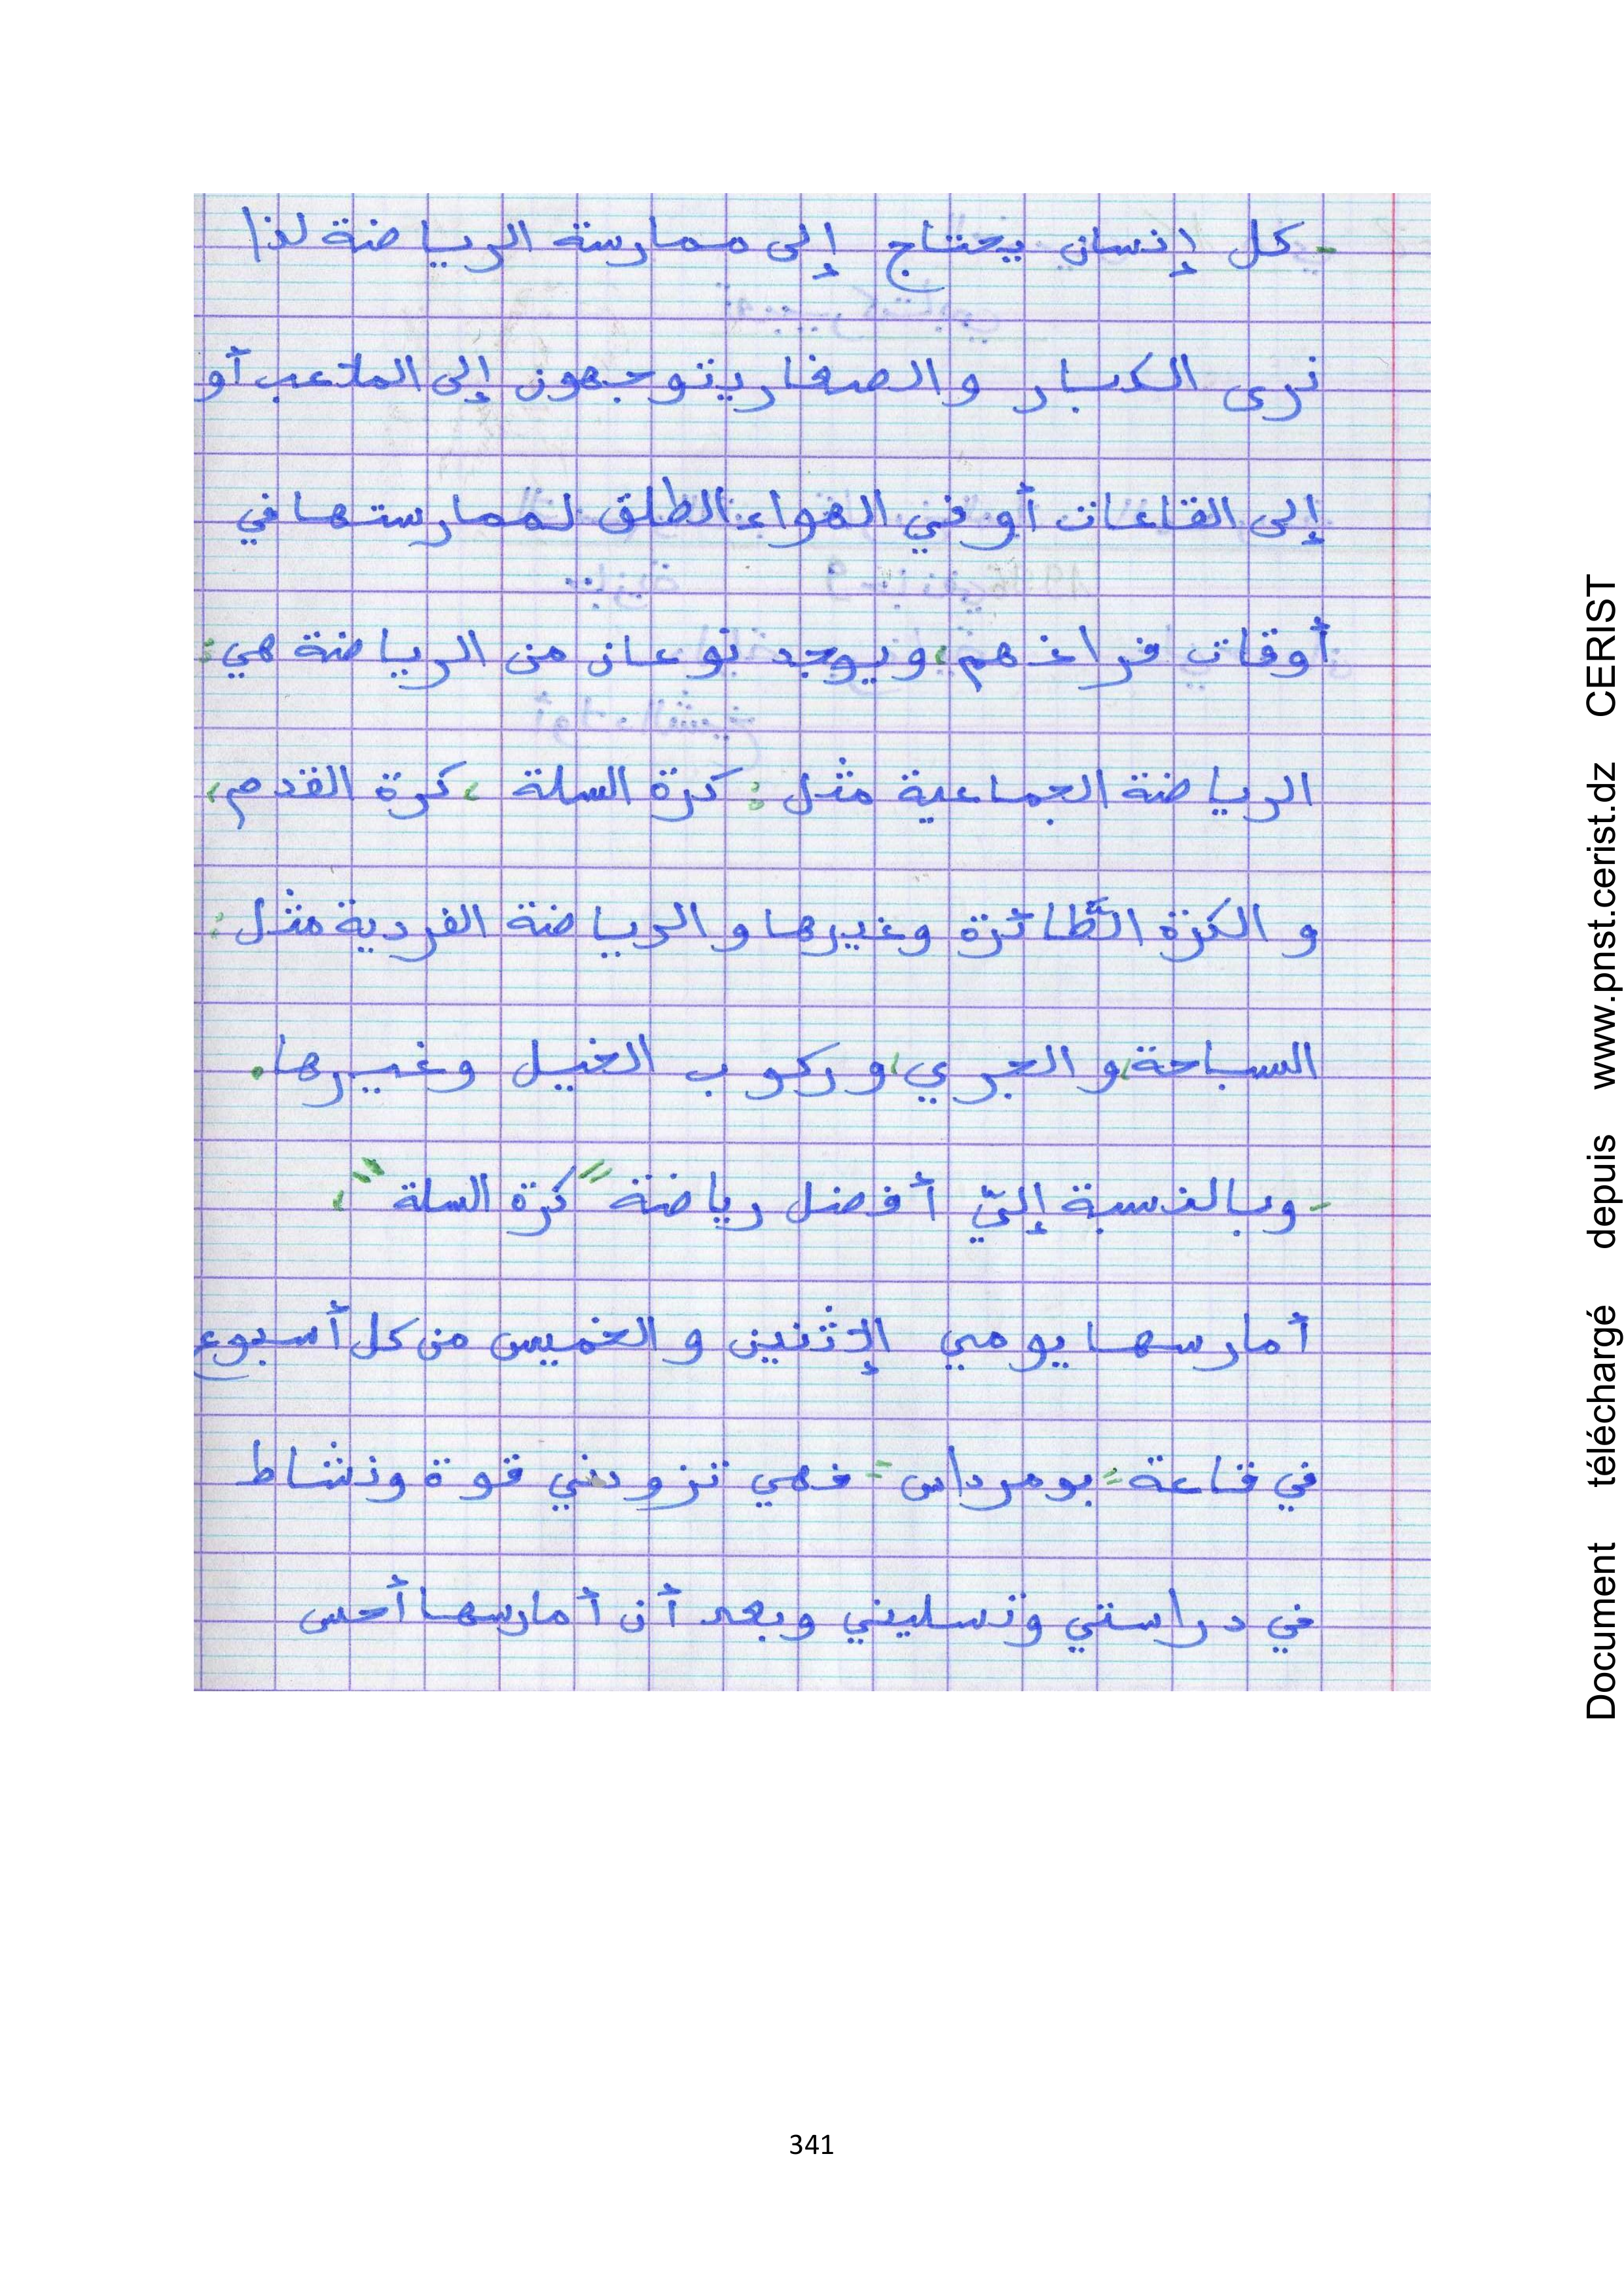 - كل إنسان يحتاج إلى ممارسة الرياضة لذا
نرى الكبار والصغار يتوجهون إلى الملاعب أو
إلى القاعات أو في الهواء الطلق لممارستها في
أوقات فراغهم، ويوجد نوعان من الرياضة هي:
الرياضة الجماعية مثل: كرة السلة، كرة القدم،
و الكرة الطّائرة وغيرها و الرياضة الفردية مثل:
السباحة، و الجري، و ركوب الخيل وغيرها.
- وبالنسبة إليّ أفضل رياضة "كرة السلة"،
أمارسها يومي الإثنين و الخميس من كل أسبوع
في قاعة "بومرداس" فهي تزودني قوة ونشاط
في دراستي وتسليني وبعد أن أمارسها أحس
341
Document téléchargé depuis www.pnst.cerist.dz CERIST